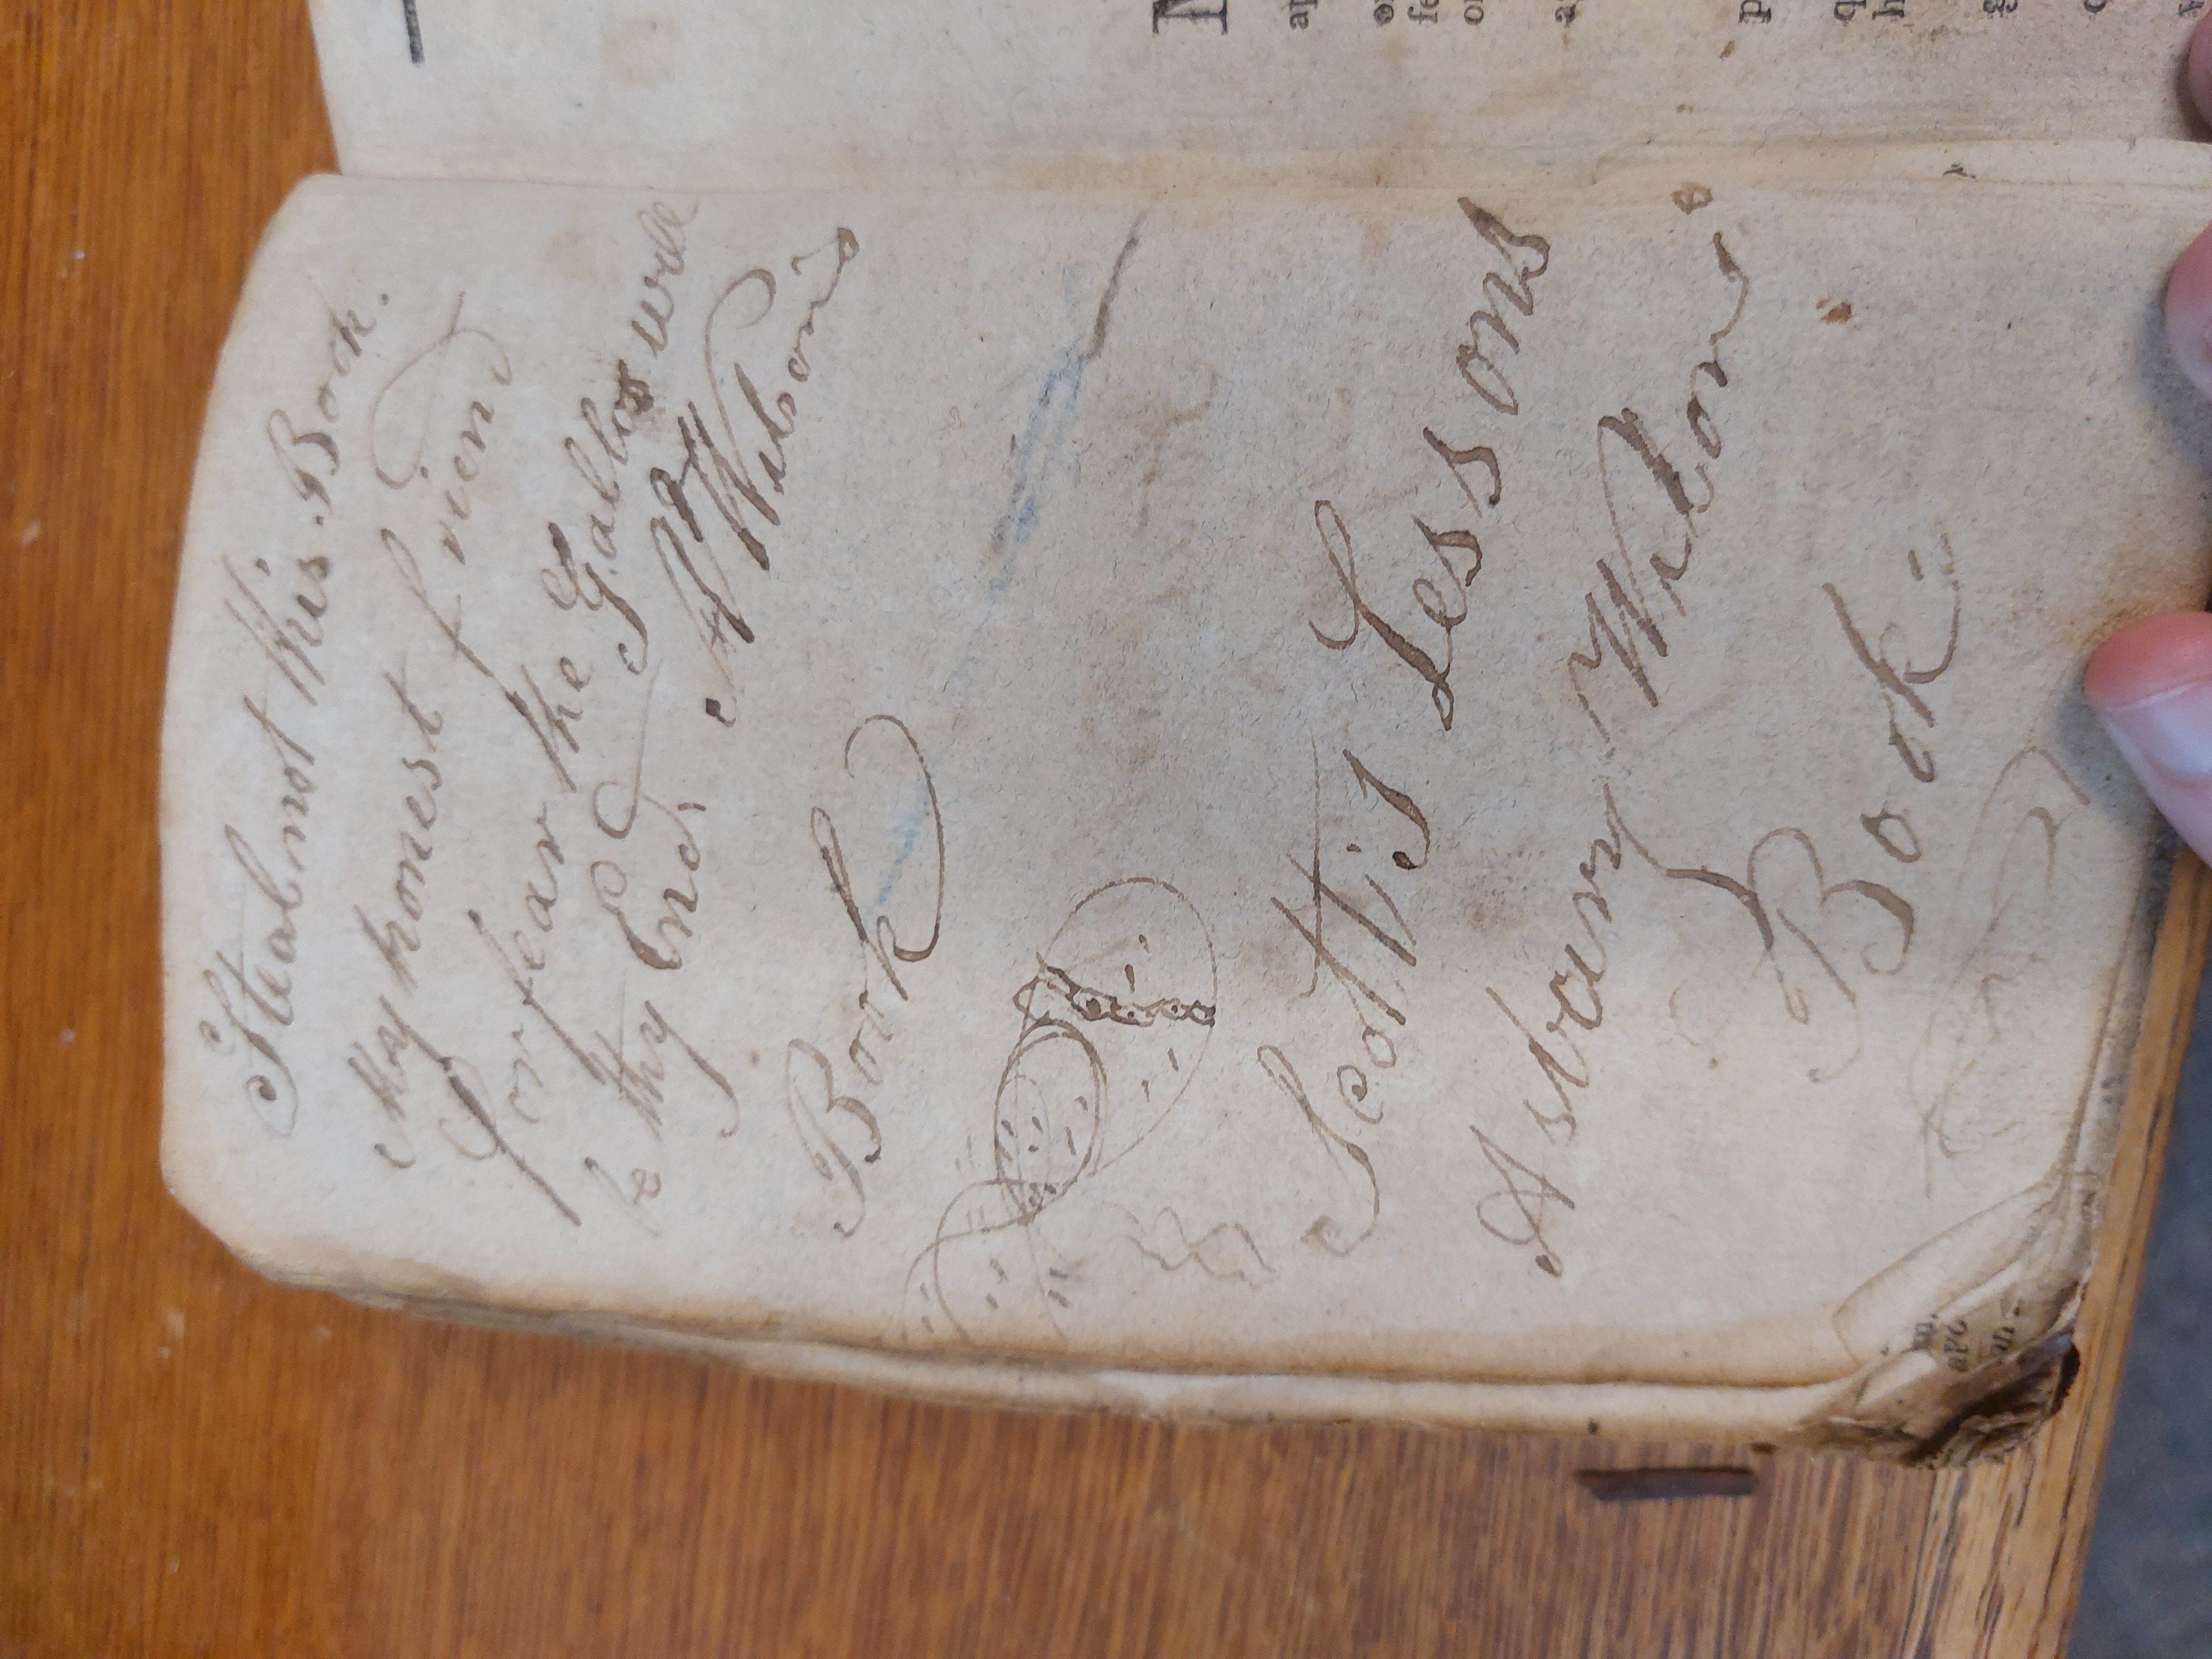 Steal not this Book.
My honest friend
for fear the Gallos will
be thy End. A Wilson's
Book
Scott's Lessons
Asbury Wilson's
Book